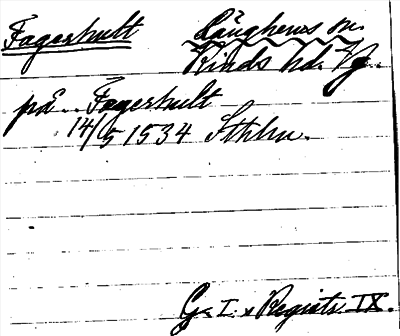 Fagerhult Länghems sn.
Kinds hd. Vg.
på.. Fagerhult
14/5 1534 Sthlm.
G. I:s Registr. IX.